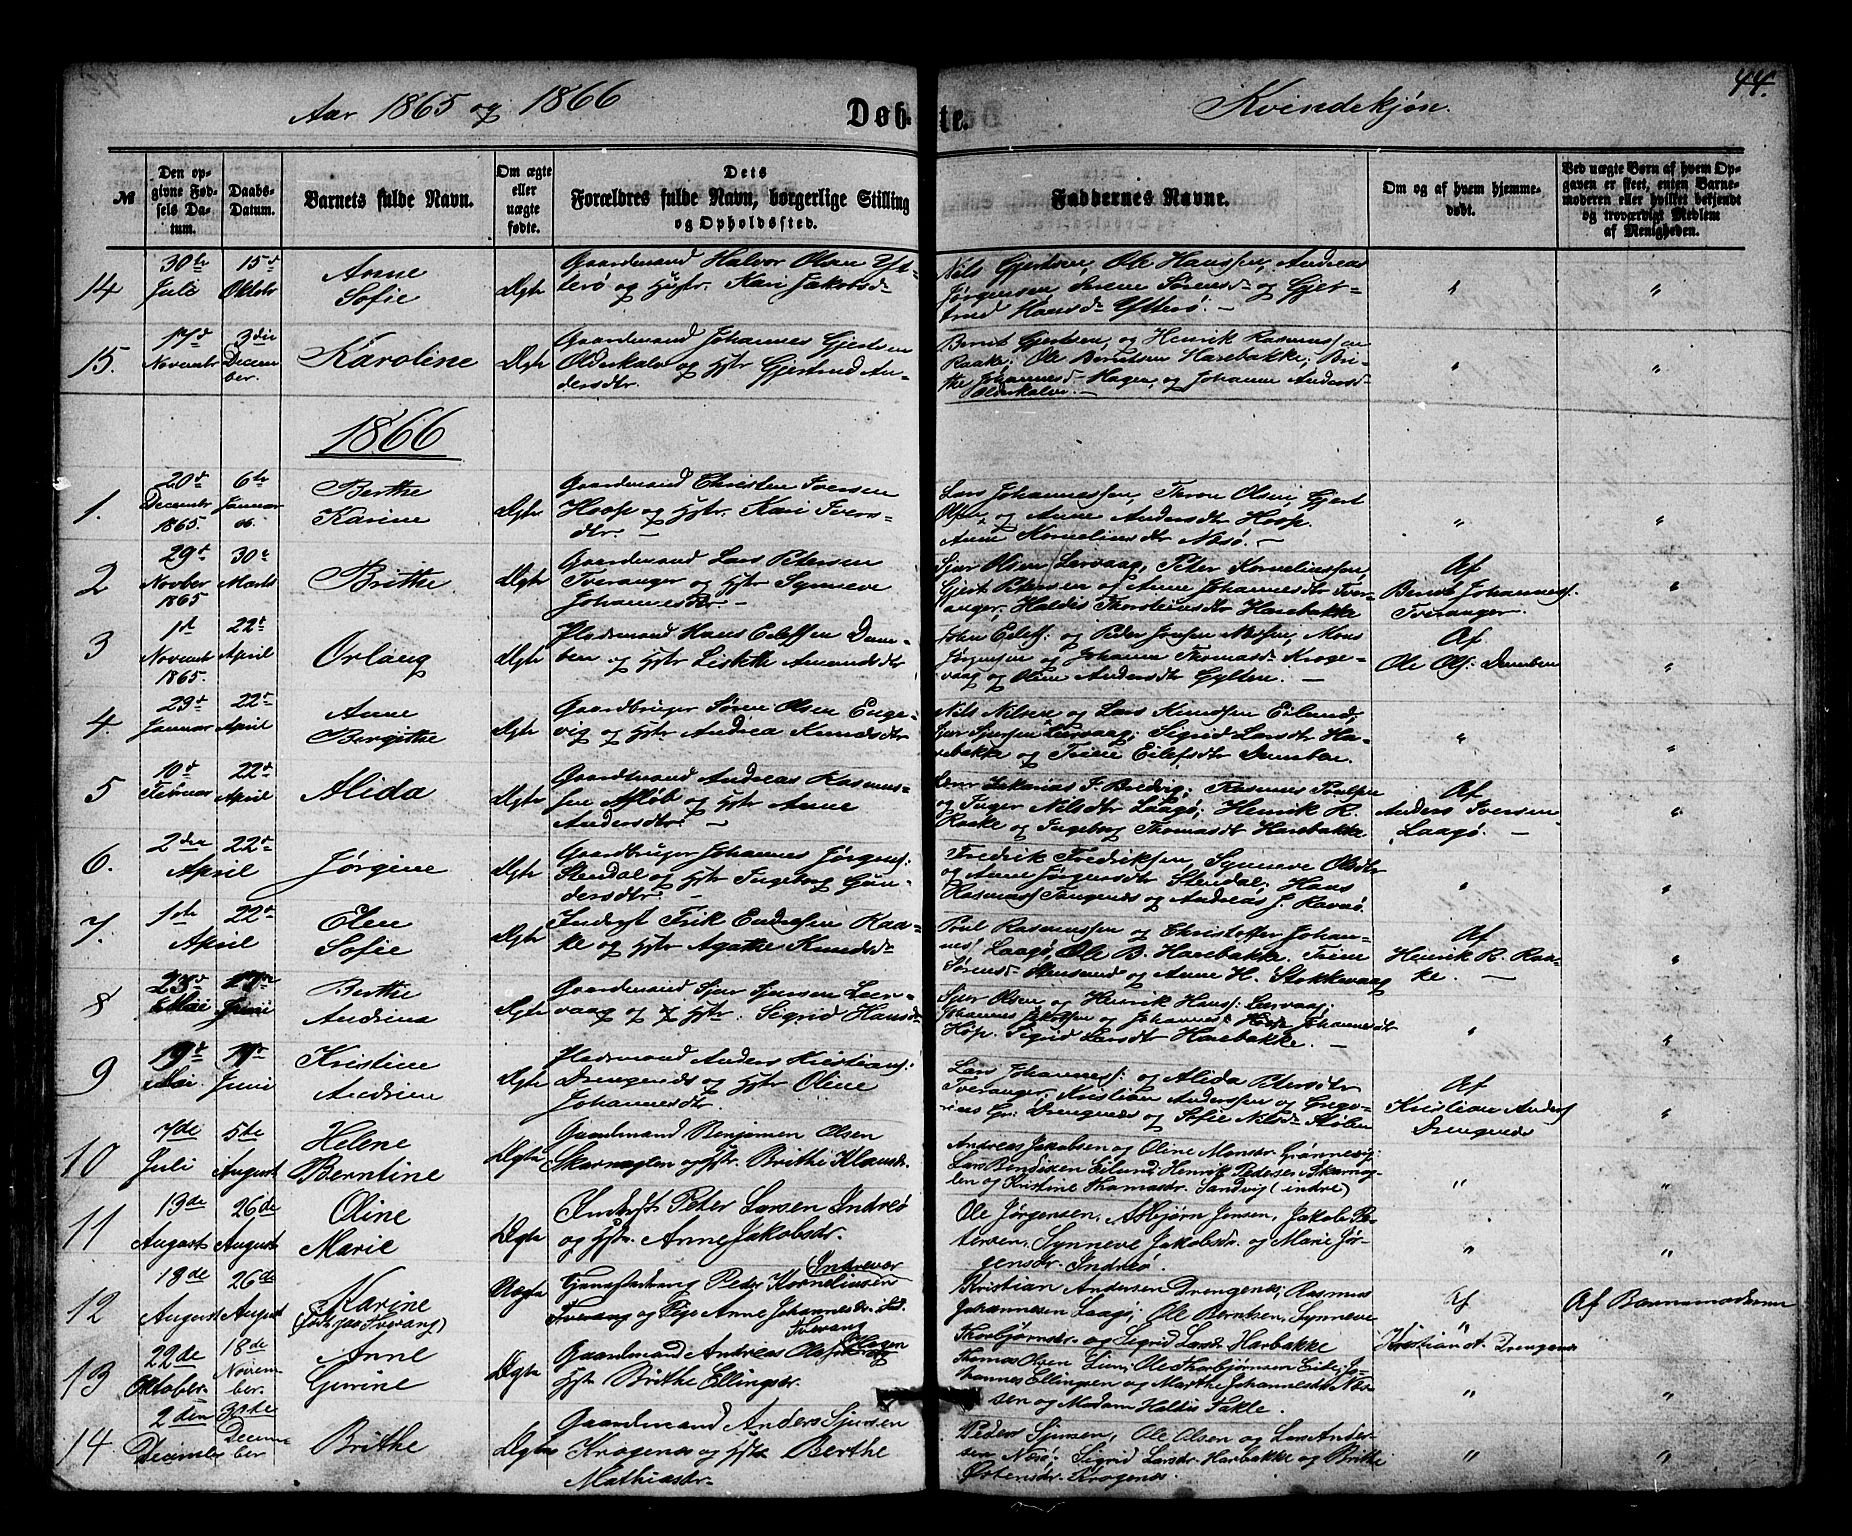 44.
Aar 1865 og 1866 Døbte. Kvindekjøn.
№ | Den opgivne Fødsels Datum. | Daabs-Datum. | Barnets fulde Navn. | Om ægte eller uægte fødte. | Dets Forældres fulde Navn, borgerlige Stilling og Opholdssted. | Faddernes Navne. | Om og af hvem hjemmedøbt. | Ved uægte Børn af hvem Opgaven er skeet, enten Barnemoderen eller hvilket bekjendt og troværdigt Medlem af Menigheden.
14 30te Juli 15d Oktbr Anne Sofie Ægte
Gaardmand Halvor Olsen Yt-
terø og Hustr. Kari Jakobsd
Nils Gjertsen, Ole Hanssen, Andreas
Jørgensen Serene Sørensd og Gjer-
trud Hansdr Ytterø. — " "
15. 17d Novembr 3die December. Karoline Ægte
Gaardmand Johannes Gjertsen
Olderkalven og Hstr Gjertrud An-
dersdtr.
Bernt Gjertsen, og Henrik Rasmussen
Raake; Ole Berntsen Harebakke; Bri-
the Johannesd Hagen, og Johanne Andersd
Olderkalven. — " "
1866
1. 20d Decembr 1865. 6te Januar 66. Berthe Karine Ægte
Gaardmand Christen Iversen
Hoop og Hstr. Kari Ivers-
dtr. —
Lars Johannessen, Thron Olsen, Gjert
Olsen, og Anne Andersdtr Hoop.
Anne Korneliusdtr Nesø. — " "
2 29d Novber 1865 30d Marts Brithe Ægte
Gaardmand Lars Petersen
Tveranger og Hstr Synneve
Johannesdtr —
Sjur Olsen Lervaag, Peter Korneliussen,
Gjert Petersen og Anne Johannesdtr Tver-
anger, Haldis Thorsteinsdtr Harebakke
Af Bernt Johanness. Tveranger. "
3 1d Novembr 1865. 22d April Orlaug Ægte
Pladsmand Hans Eilefsen Dum-
ben og Hstr Liskthe Amundsdtr
John Eilefs. og Peder Jonsen Nessen, Mons
Jørgensen og Johanne Thomasd Kroge-
vaag og Oline Andersdtr Gylten. —
Af Ole Ols: Dumben "
4. 29d Januar 22d April Anne Bergithe Ægte
Gaardbruger Søren Olsen Enge-
vig og Hstr Andrea Knudsdtr
Nils Nilsen og Lars Knudsen Eilund,
Sjur Sjursen Lervaag; Sigrid Larsdtr Ha-
rebakke og Trine Eilefsdtr Dumben. " "
5 10d Februar 22d April Alida Ægte
Gaardmand Andreas Rasmus-
sen Afløb og Hstr Anne
Andersdtr. —
Zakarias F. Bredvig; Rasmus Poulsen
og Inger Nilsdtr Laagø; Henrik R.
Raake og Ingeborg Thomasdtr Harebakke
Af Anders Iversen Laagø. — "
6. 2den April 22d Jørgine Ægte
Gaardbruger Johannes Jørgens:
Stendal og Hstr Ingeborg Gun-
dersdtr. —
Fredrik Fredriksen, Synneve Olsdtr
og Anne Jørgensdtr Stendal; Hans
Rasmuss Tangenes og Andreas J Ravnø. " "
7. 1ste April 22d Elen Sofie Ægte
Inderst Erik Endresen Raa-
ke og Hstr Agathe Knudsd
Poul Rasmussen og Christoffer Johan-
nes. Laagø, Ole B. Harebakke. Trine
Sørensd Stensund og Anne H. Stokkevaag
Af Henrik R. Raake. — "
8 23d Mai Juni Berthe Andrina Ægte
Gaardmand Sjur Sjursen Ler-
vaag og Hstr. Sigrid Hansd
Sjur Olsen og Henrik Hans: Lervaag;
Johannes Jakobsen og Johannes Johannesdtr
Hop. Sigrid Larsdtr Harebakke. — " "
9 19d Mai. Juni Kristine Andrine Ægte
Pladsmand Anders Kristians:
Drengenes og Hstr Oline
Johannesdtr.
Lars Johanness: og Alida Petersdtr
Tveranger, Kristian Anderssen og Grego-
rius Gr: Drengenes og Sofie Nilsd Støben
Af Kristian Anders Drengenes "
10 7de Juli 5te August Helene Berntine Ægte
Gaardmand Benjamen Olsen
Skarnøglen og Hstr. Brithe Klausdr.
Andreas Jakobsen og Oline Monsdr. Grønnevig;
Lars Bendixen Eilund; Henrik Pedersen Skarnøg-
len og Kristine Thomasdr. Sandvig (indre) " "
11 19de August 26de August Oline Marie Ægte
Inderst Peter Larsen Indreø
og Hstr. Anne Jakobsdr.
Ole Jørgensen, Asbjørn Jensen, Jakob Pe-
tersen, Synneve Jakobsdr. og Marie Jør-
gensdr. Indreø. " "
12 18de August 26de August Karine (født paa Tverang) Uægte
Ungkarl Peder Korneliussen
Tverang og Pige Anne Johannesdr.
Tverang
Kristian Andersen Drengenes; Rasmus
Johannesen Laagø; Ole Berntsen, Synneve
Thorbjørnsdr. og Sigrid Larsdr. Harbakke
Af Kristian A. Drengenes Af Barnemoderen
13 22de Oktober. 18de November. Anne Gurine Ægte
Gaardmand Andreas Olsen Hagen og
Hstr Brithe Ellingsdr.
Thomas Olsen Lim, Ole Thorbjørnsen Eide, Jo-
hannes Ellingsen og Marthe Johannesdr. Nes-
sen og Madam Haldis Takle. " "
14 2den December 30te December Brithe Ægte
Gaardmand Anders Sjursen
Krogenes og Hstr Berthe
Mathiasdr.
Peder Sjursen, Ole Olsen og Lars Ander-
sen Nesø; Sigrid Larsdr. Harbakke og Brithe
Østensdr. Krogenes. " "